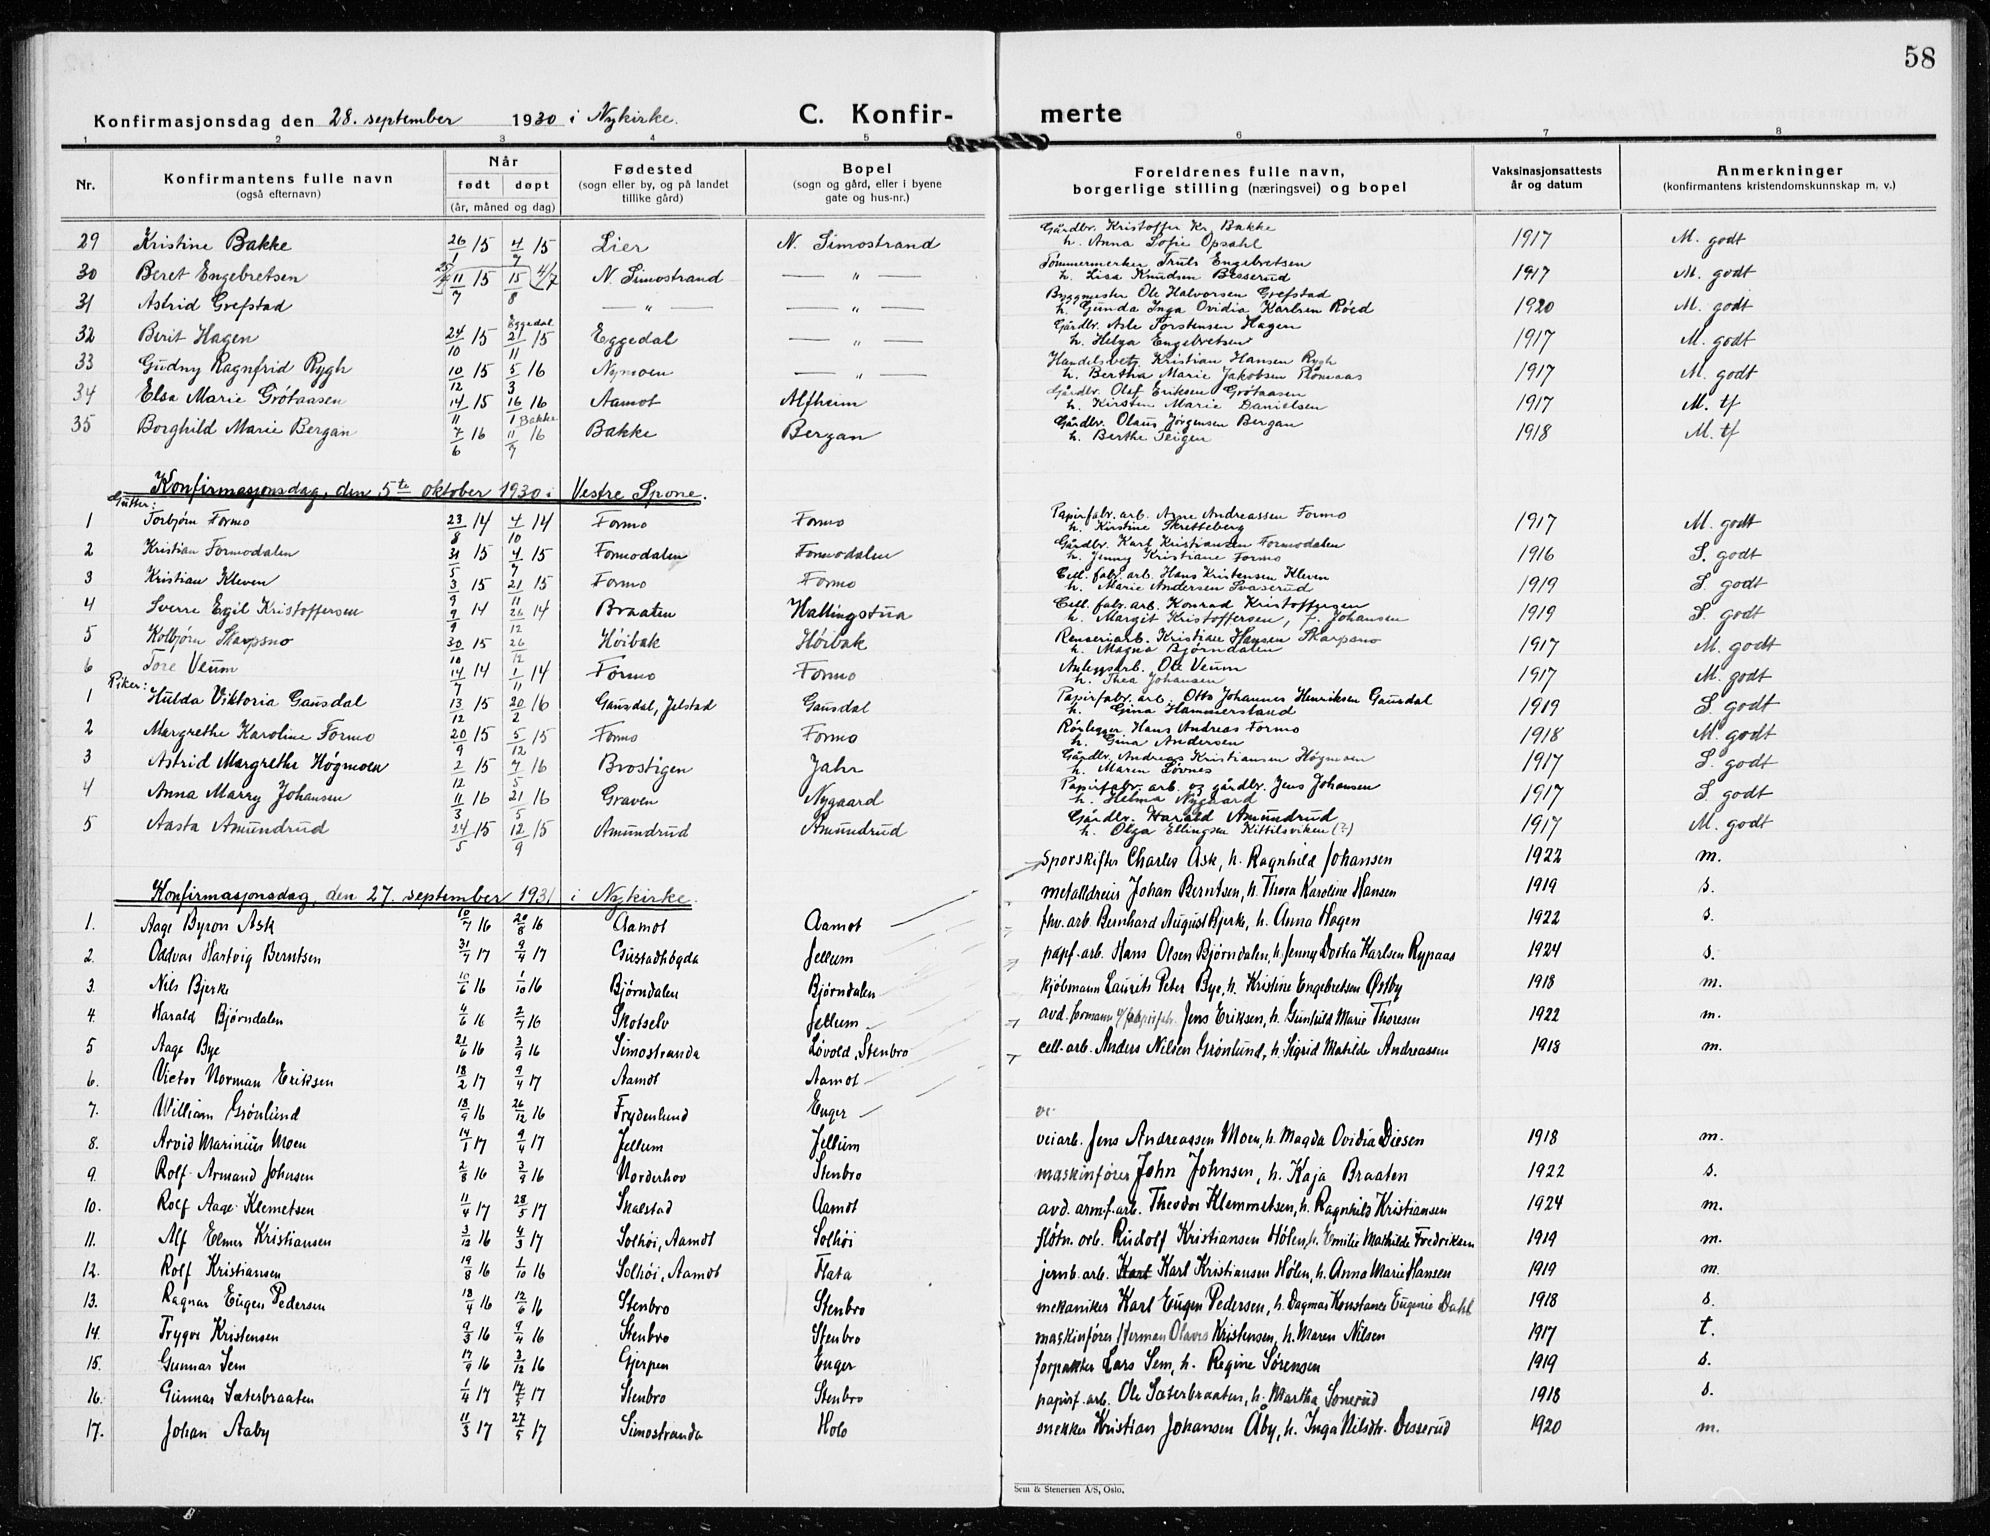 58
Konfirmasjonsdag den 28. september 1930 i Nykirke. C. Konfir- merte
1 2 3 4 5 6 7 8
Nr. Konfirmantens fulle navn (også efternavn) Når født døpt (år, måned og dag) Fødested (sogn eller by, og på landet tillike gård) Bopel (sogn og gård, eller i byene gate og hus-nr.) Foreldrenes fulle navn, borgerlige stilling (næringsvei) og bopel Vaksinasjonsattests år og datum Anmerkninger (konfirmantens kristendomskunnskap m. v.)
29 Kristine Bakke 26/1 15 4/7 15 Lier N. Simostrand Gårdbr. Kristoffer Kr. Bakke h. Anna Sofie Opsahl 1917 M. godt
30 Beret Engebretsen 15 4/7 N. Simostrand — " — Tømmermerker Truls Engebretsen h. Lisa Knudsen Besserud 1917 M. godt
31 Astrid Grefstad 11/7 15 15/8 — " — — " — Byggmester Ole Halvorsen Grefstad h. Gunda Inga Ovidia Karlsen Röed 1920 M. godt
32 Berit Hagen 24/10 15 Eggedal 21/11 15 Eggedal — " — Gårdbr. Asle Torstensen Hagen h. Helga Engebretsen 1917 M. godt
33 Gudny Ragnfrid Rygh 10/12 15 5/3 16 Nymoen — " — Handelsbetj. Kristian Hansen Rygh h. Bertha Marie Jakobsen Romaas 1917 M. godt
34 Elsa Marie Grötaasen 14/11 15 16/1 16 Aamot Alfheim Gårdbr. Olaf Eriksen Grötaasen h. Kirsten Marie Danielsen 1917 M. tf
35 Borghild Marie Bergan 4/6 16 Bakke 11/9 16 Bakke Bergan Gårdbr. Olaus Jørgensen Bergan h. Berthe Teigen 1918 M. tf
Konfirmasjonsdag, den 5te oktober 1930 i Vestre Spone.
Gutter:
1 Torbjørn Formo 23/8 14 4/10 14 Formo Formo Papirfabr. arb. Arne Andreassen Formo h. Kirstine Skretteberg 1917 M. godt
2 Kristian Formodalen 31/5 15 4/7 15 Formodalen Formodalen Gårdbr. Karl Kristiansen Formodalen h. Jenny Kristiane Formo 1916 S. godt
3 Kristian Kleven 3/9 15 21/11 15 Formo Formo Cell. fabr. arb. Hans Kristensen Kleven h. Marie Andersen Svaserud 1919 S. godt
4 Sverre Egil Kristoffersen 9/9 14 26/12 14 Braaten Hallingstua Cell. fabr. arb. Konrad Kristoffersen h. Margit Kristoffersen, f. Johansen 1919 S. godt
5 Kolbjørn Skarpsno 30/10 15 26/12 Höibak Höibak Renseriarb. Kristian Hansen Skarpsno h. Magna Bjørndalen 1917 M. godt
6 Tore Veum 14/7 14 1/11 14 Formo Formo Anleggsarb. Ole Veum h. Thea Johansen 1917 M. godt
Piker:
1 Hulda Viktoria Gausdal 13/12 15 20/2 16 Gausdal, Jelstad Gausdal Papirfabr. arb. Otto Johannes Henriksen Gausdal h. Gina Hammerstand 1919 S. godt
2 Margrethe Karoline Formo 20/9 15 5/12 15 Formo Formo Rörlegger Hans Andreas Formo h. Gina Andersen 1918 M. godt
3 Astrid Margrethe Högmoen 2/12 15 7/5 16 Brostigen Jahr Gårdbr. Andreas Kristiansen Högmoen h. Maren Lövnes 1917 S. godt
4 Anna Marry Johansen 11/3 16 21/5 16 Graven Nygaard Papirfabr. arb. og gårdbr. Jens Johansen h. Helma Nygaard 1917 S. godt
5 Aasta Amundrud 24/5 15 12/9 15 Amundrud Amundrud Gårdbr. Harald Amundrud h. Olga Ellingsen Kittilsviken (?) 1917 M. godt
sporskifter Charles Ask, h. Ragnhild Johansen 1922 m.
metalldreier Johan Berntsen, h. Thora Karoline Hansen 1919 s.
Konfirmasjonsdag, den 27. september 1931 i Nykirke.
1. Aage Byron Ask 10/7 16 20/8 16 Aamot Aamot fhv. arb. Bernhard August Bjerke, h. Anna Hagen 1922 s.
2. Oddvar Hartvig Berntsen 31/7 17 9/4 17 Gustadhögda Jellum papf. arb. Hans Olsen Bjørndalen, h. Jenny Dortea Karlsen Rypaas 1924 s.
3. Nils Bjerke 10/6 16 1/10 16 Bjørndalen Bjørndalen kjöbmann Laurits Peter Bye, h. Kristine Engebretsen Østby 1918 m.
4. Harald Bjørndalen 4/6 16 2/7 16 Skotselv Jellum avd. formann v/ papirfab. Jens Eriksen, h. Gunhild Marie Thoresen 1922 m.
5 Aage Bye 21/6 16 3/9 16 Simostranda Lövold, Stenbro cell.-arb. Anders Nilsen Grönlund, h. Sigrid Mathilde Andreassen 1918 m.
6. Victor Norman Eriksen 18/2 17 9/4 17 Aamot Aamot
7. William Grönlund 18/9 16 26/12 16 Frydenlund Enger
8. Arvid Marinius Moen 14/1 17 9/4 17 Jellum Jellum veiarb. Jens Andreassen Moen, h. Magda Ovidia Diesen 1918 m.
9. Rolf Armand Johnsen 2/8 16 3/9 16 Norderhov Stenbro maskinfører John Johnsen, h. Kaja Braaten 1922 s.
10. Rolf Aage Klemetsen 11/4 17 28/5 17 Skalstad Aamot avd. arm.f. arb. Theodor Klemmetsen, h. Ragnhild Kristiansen 1924 m.
11. Alf Elmer Kristiansen 3/12 16 4/3 17 Solhöi, Aamot Solhöi flötn. arb. Rudolf Kristiansen Hölen, h. Emilie Mathilde Fredriksen 1919 m.
12. Rolf Kristiansen 19/8 16 1/10 16 Solhöi, Aamot Flata jernb. arb. Karl Karl Kristiansen Hölen, h. Anna Marie Hansen 1919 m.
13. Ragnar Eugen Pedersen 18/4 16 12/6 16 Stenbro Stenbro mekaniker Karl Eugen Pedersen, h. Dagmar Konstance Eugenie Dahl 1918 s.
14. Trygve Kristensen 9/3 16 9/4 16 Stenbro Stenbro maskinfører Herman Olaves Kristensen, h. Maren Nilsen 1917 t.
15. Gunnar Sem 17/9 16 3/12 16 Gjerpen Enger forpakter Lars Sem, h. Regine Sørensen 1919 s.
16. Gunnar Sæterbraaten 1/4 17 17/5 17 Stenbro Stenbro papirf. arb. Ole Sæterbraaten, h. Martha Sonerud 1918 s.
17. Johan Aaby 11/3 17 27/5 17 Simostranda Holo snekker Kristian Johansen Åby, h. Inga Nilsdtr. Disserud 1920 m.
Sem & Stenersen A/S, Oslo.